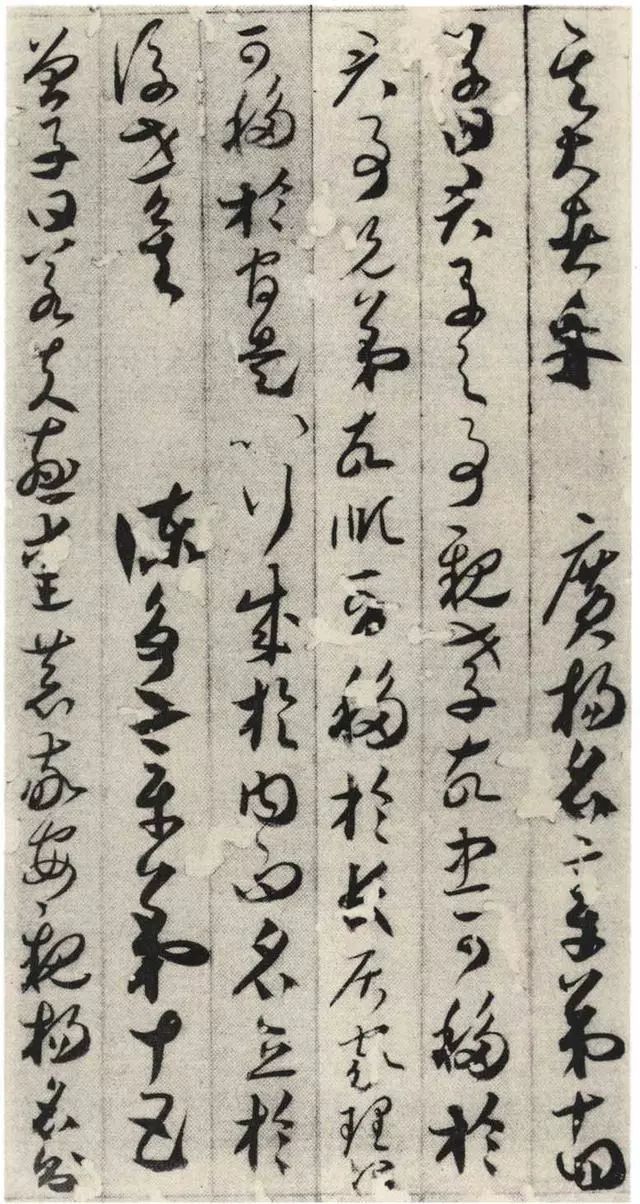 其大者乎 廣揚名章第十四
子曰君子之事親孝故忠可移於
君事兄弟故順可移於長居家理治
可移於官是以行成於內而名立於
後世矣 諫爭章第十五
曾子曰若夫慈愛恭敬安親揚名則